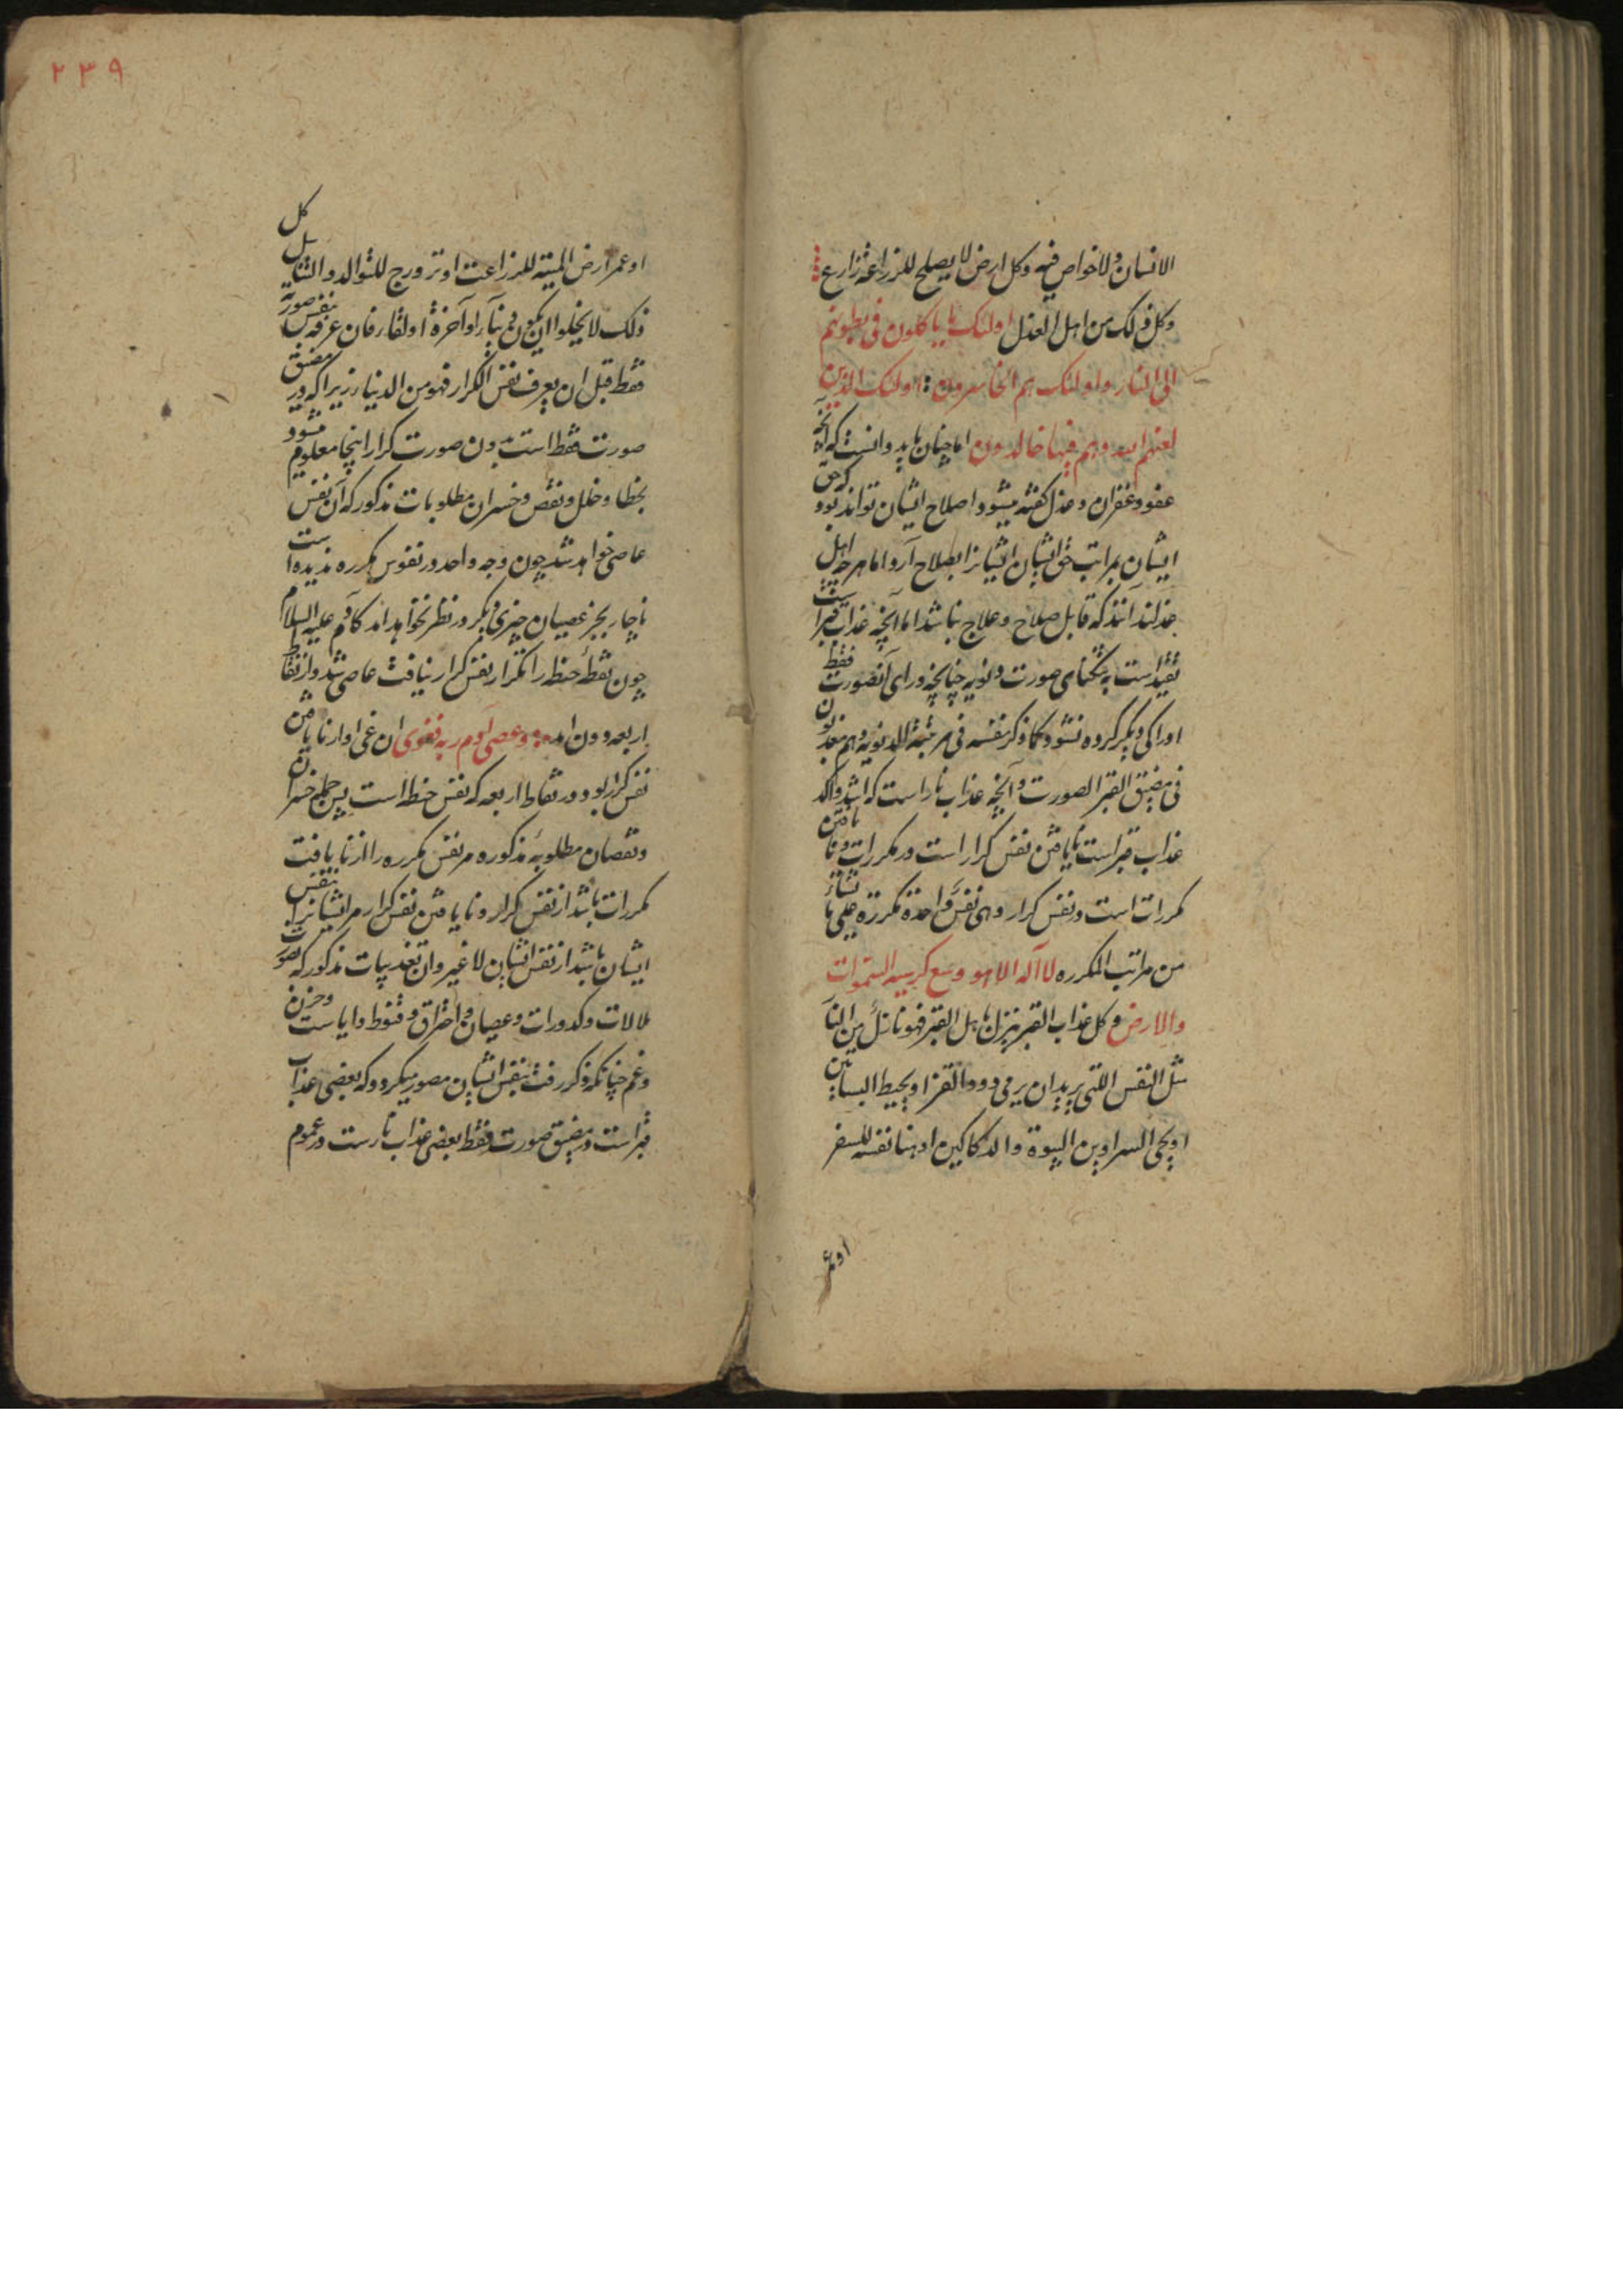 الانسان ولا خواص فیه وکل ارض لا یصلح للزراعة زارع
وکل ذلک من اهل العذل اولئک ما یاکلون فی بطونهم
الی النار واولئک هم الخاسرون اولئک الذین
لعنهم الله وهم فیها خالدون اما چنان باید دانست که آنچه
عفو وغفران وعذل گفته میشود اصلاح ایشان تواند بود که حق
ایشان بمراتب حق ایشان ایشانرا بصلاح آرد اما هرچه اهل
عذلند آنند که قابل صلاح وعلاج نباشند اما آنچه عذاب قبر است
تقید است به تنکنای صورت دنویه چنانچه ورای آنصورت فقط
ادراکی دیگر کرده نشود کما ذکر نفسه فی مرتبة الدنویه وهم معذبون
فی مضیق القبر الصورت و آنچه عذاب نار است که اشد واکد
عذاب قبر است نایافتن نفس کرار است در مکررات ونایافتن
مکررات است در نفس کرار وهی نفس واحدة مکررة علی ما تشاء
من مراتب المکرره لا اله الا هو وسع کرسیه السموات
والارض وکل عذاب القبر ینزل باهل القبر فهو نازل من النار
مثل النفس اللتی یرید ان یرمی دود القز او یحیط البساتین
او یحی السراوین البیوة والدکاکین او هنا نفسه للسفر
او عمر
٢٣٩
او عمر ارض المیته للزراعت او تزوج للتوالد والتناسل کل
ذلک لا یخلوا ان یکون دنیآء او آخرة او لقاء فان عرفه بنفس صورته
فقط قبل ان یعرف نفس الکرار فهو من الدنیا زیرا که در مضیق
صورت فقط است بدون صورت کرار اینجا معلوم میشود
بخطا وخلل ونقص وخسران مطلوبات مذکور که آن نفس
عاصی خواهد شد چون وجه واحد در نفوس مکرره ندیده است
ناچار بجز عصیان چیزی دیگر در نظر نخواهد آمد کآدم علیه السلام
چون نقطهٔ حنطه را تکرار نفس کرار نیافت عاصی شد واز نقاط
اربعه دون امد وعصی آدم ربه فغوی ان غی او از نایافتن
نفس کرار بود در نقاط اربعه که نفس حنطه است پس جمله خسران
ونقصان مطلوبهٔ مذکوره مر نفس مکرره را از نایافت
مکررات باشد از نفس کرار ونایافتن نفس کرار مر ایشانرا بنفس
ایشان باشد از نفس ایشان لا غیر وان تعذیبات مذکور که صورت
ملالات وکدورات وعصیان واحتراق وقنوط وایاست وحزن
وغم چنانکه ذکر رفت بنفس ایشان مصور میگردد که بعضی عذاب
قبر است در مضیق صورت فقط بعضی عذاب نارست در عموم